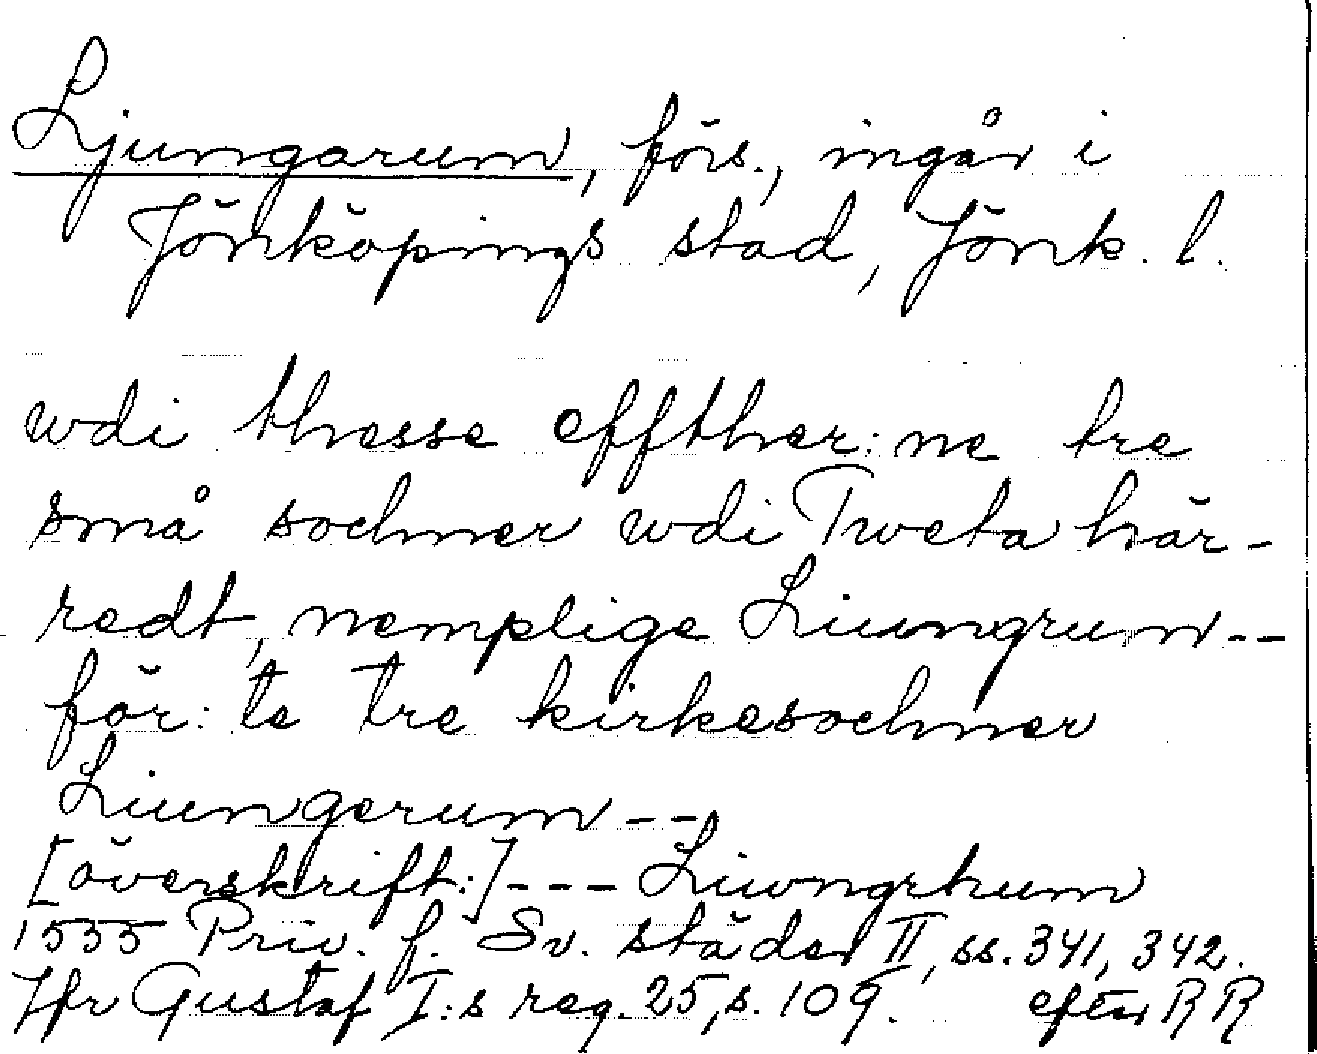 Ljungarum, förs., ingår i
Jönköpings stad, Jönk. l.
wdi thesse effther:ne tre
små sochner wdi Tweta här-
redt, nemplige Liungrum --
för:te tre kirkesochner
Liungerum --
[överskrift:] --- Liwngrhum
1555 Priv. f. Sv. städer II, ss. 341, 342.
Jfr Gustaf I:s reg. 25, s. 109. efter RR